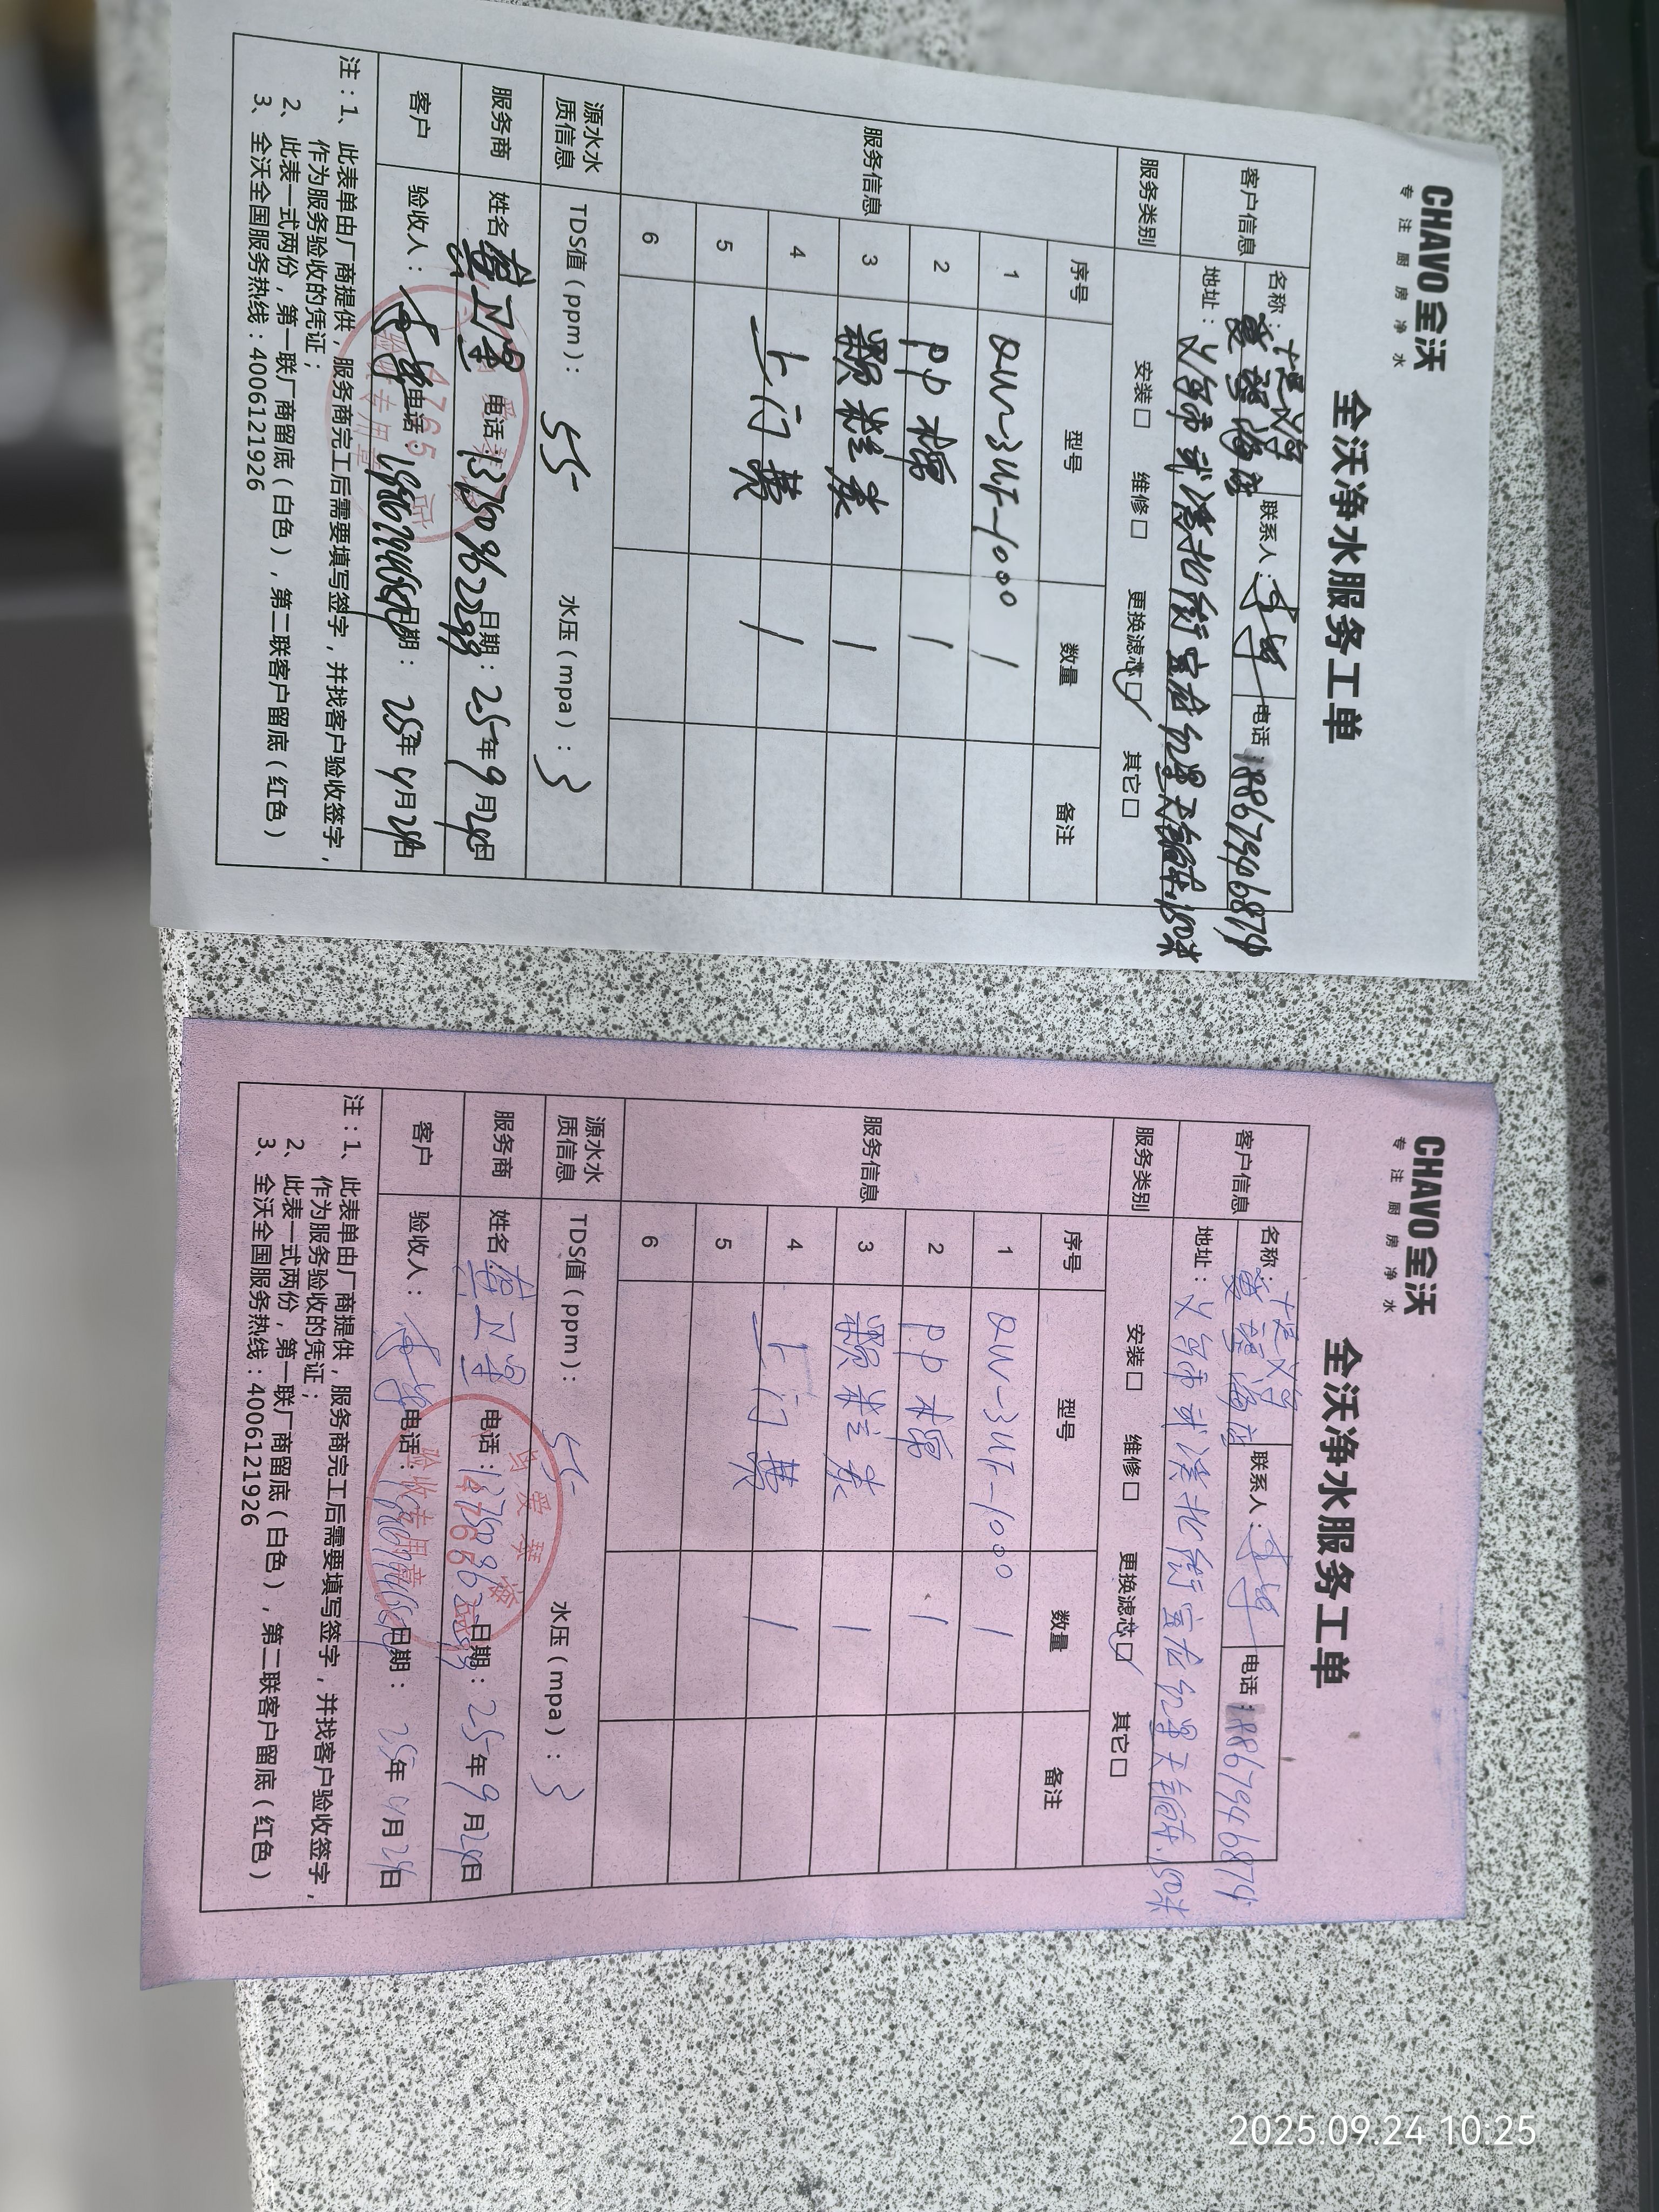 CHAVO 全沃
专注厨房净水
全沃净水服务工单
客户信息 名称: 联系人: 电话 18867946879
地址: 义乌市 北街宝龙
服务类别 安装□ 维修□ 更换滤芯□✓ 其它□
服务信息 序号 型号 数量 备注
1 QW-3UF-1000 1
2 PP棉 1
3 颗粒炭 1
4 上门费 1
5
6
源水水质信息 TDS值(ppm): 55 水压(mpa): 3
服务商 姓名 电话: 13750962299 日期: 25年9月24日
客户 验收人: 电话: 日期: 25年9月24日
注:1、此表单由厂商提供,服务商完工后需要填写签字,并找客户验收签字,
作为服务验收的凭证;
2、此表一式两份,第一联厂商留底(白色),第二联客户留底(红色)
3、全沃全国服务热线:4006121926
CHAVO 全沃
专注厨房净水
全沃净水服务工单
客户信息 名称: 联系人: 电话 18867946879
地址: 义乌市 北街宝龙
服务类别 安装□ 维修□ 更换滤芯□✓ 其它□
服务信息 序号 型号 数量 备注
1 QW-3UF-1000 1
2 PP棉 1
3 颗粒炭 1
4 上门费 1
5
6
源水水质信息 TDS值(ppm): 55 水压(mpa): 3
服务商 姓名: 电话: 13750962299 日期: 25年9月24日
客户 验收人: 电话: 日期: 25年9月24日
验收专用章
注:1、此表单由厂商提供,服务商完工后需要填写签字,并找客户验收签字,
作为服务验收的凭证;
2、此表一式两份,第一联厂商留底(白色),第二联客户留底(红色)
3、全沃全国服务热线:4006121926
2025.09.24 10:25